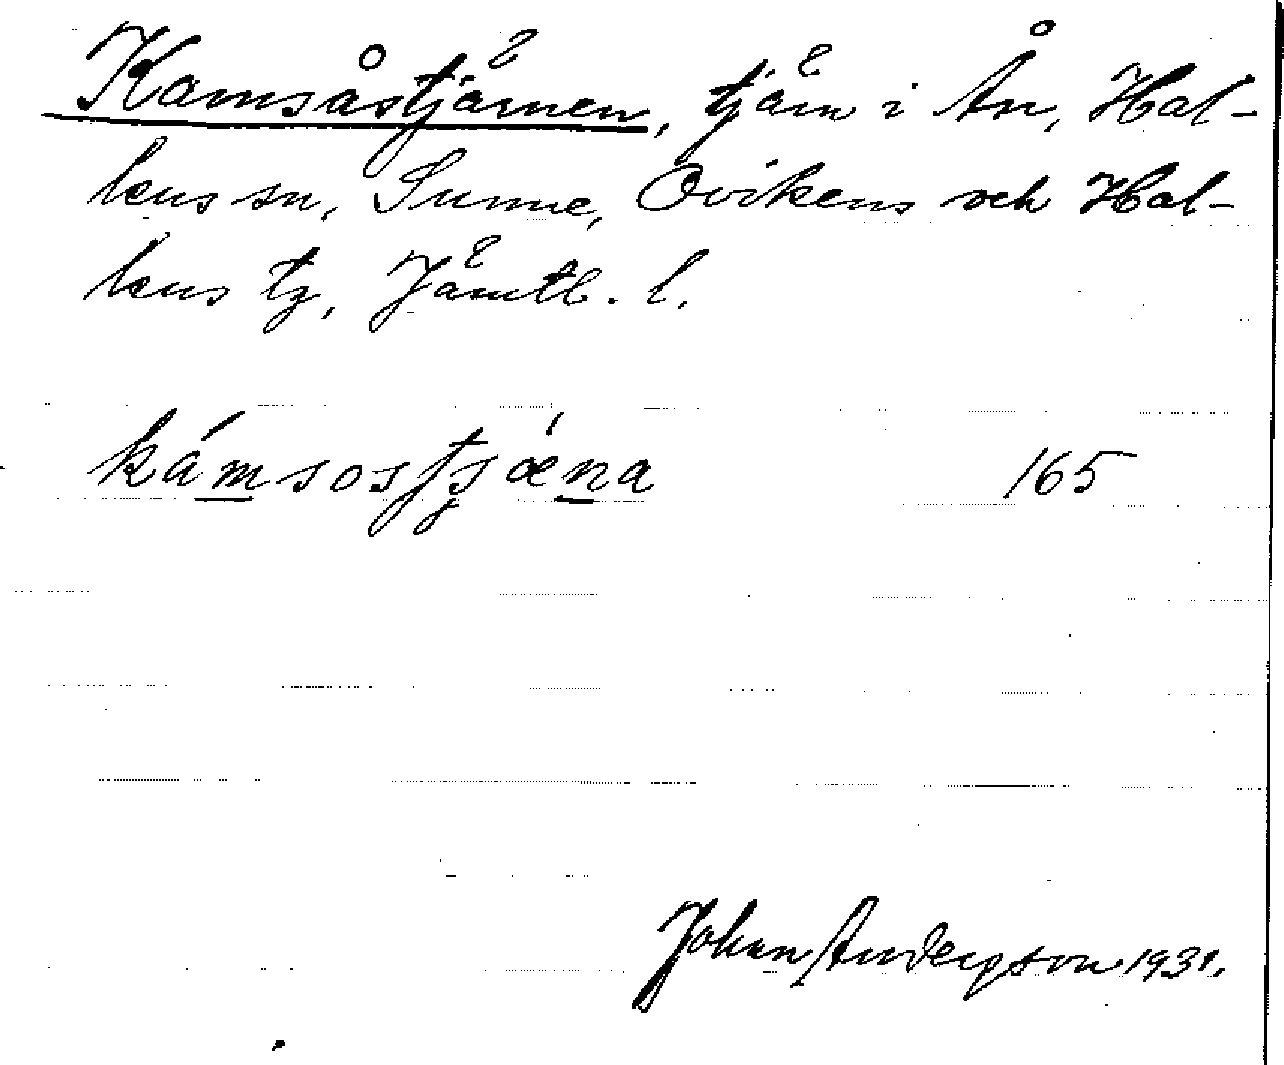 Kamsåstjärnen, tjärn i Ån, Hal-
lens sn, Sunne, Ovikens och Hal-
lens tg, Jämtl. l.
kámsostʂǽna 165
Johan Anderson 1931.